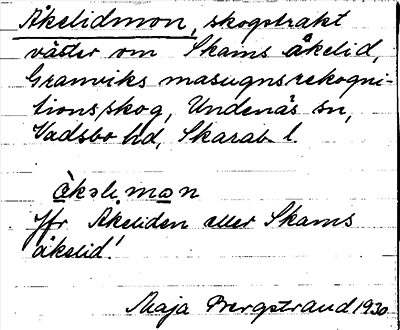 Åkelidmon, skogstrakt
väster om Skams åkelid,
Granviks masugnsrekogni-
tionsskog, Undenäs sn,
Vadsbo hd, Skarab. l.
àkəlimon
Jfr Åkeliden eller Skams
åkelid!
Maja Bergstrand 1930